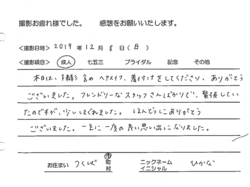 撮影お疲れ様でした。 感想をお願いいたします。
<撮影日時> 2019年 12月 8日 (日)
<撮影項目> 成人 七五三 ブライダル 記念 その他
本日は、 のヘアメイク、着付けをしてくださり、ありがとう
ございました。フレンドリーなスタッフさんばかりで、緊張してい
たのですが、少しほぐれました。ほんとうにありがとう
ございました。一生に一度の良い思い出になりました。
お住まい つくば 市 町 村 ニックネーム イニシャル ひかな